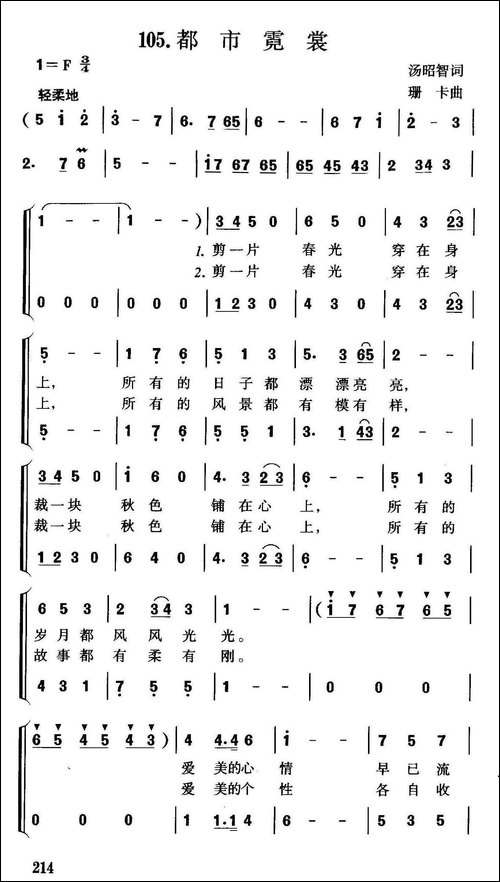 105. 都市霓裳
1=F 3/4
汤昭智词
轻柔地
珊卡曲
(5 i 2 | 3 - 7 | 6. 7 65 | 6 - - | 6 7 i | 2 - 3
2. 7 6 | 5 - - | i7 67 65 | 65 45 43 | 2 34 3
1 - - | 1 - - ) | 3 4 5 0 | 6 5 0 | 4 3 23
1. 剪一片 春光 穿在身
2. 剪一片 春光 穿在身
0 0 0 | 0 0 0 | 1 2 3 0 | 4 3 0 | 4 3 23
5 - - | 1 7 6 | 5 1 3 | 5. 3 65 | 2 - -
上, 所有的 日子都 漂漂亮亮,
上, 所有的 风景都 有模有样,
5 - - | 1 7 6 | 5 5 1 | 3. 1 43 | 2 - -
3 4 5 0 | i 6 0 | 4. 3 23 | 6 - - | 5 1 3
裁一块 秋色 铺在心上, 所有的
裁一块 秋色 铺在心上, 所有的
1 2 3 0 | 6 4 0 | 4. 3 23 | 6 - - | 5 1 3
6 5 3 | 2 34 3 | 1 - - | (i 7 6 7 6 5
岁月都 风风光光。
故事都 有柔有刚。
4 3 1 | 7 5 5 | 1 - - | 0 0 0
6 5 4 5 4 3) | 4 4.4 6 | i - - | 7 5 7
爱美的心情 早已流
爱美的个性 各自收
0 0 0 | 1 1.1 4 | 6 - - | 5 3 5
214